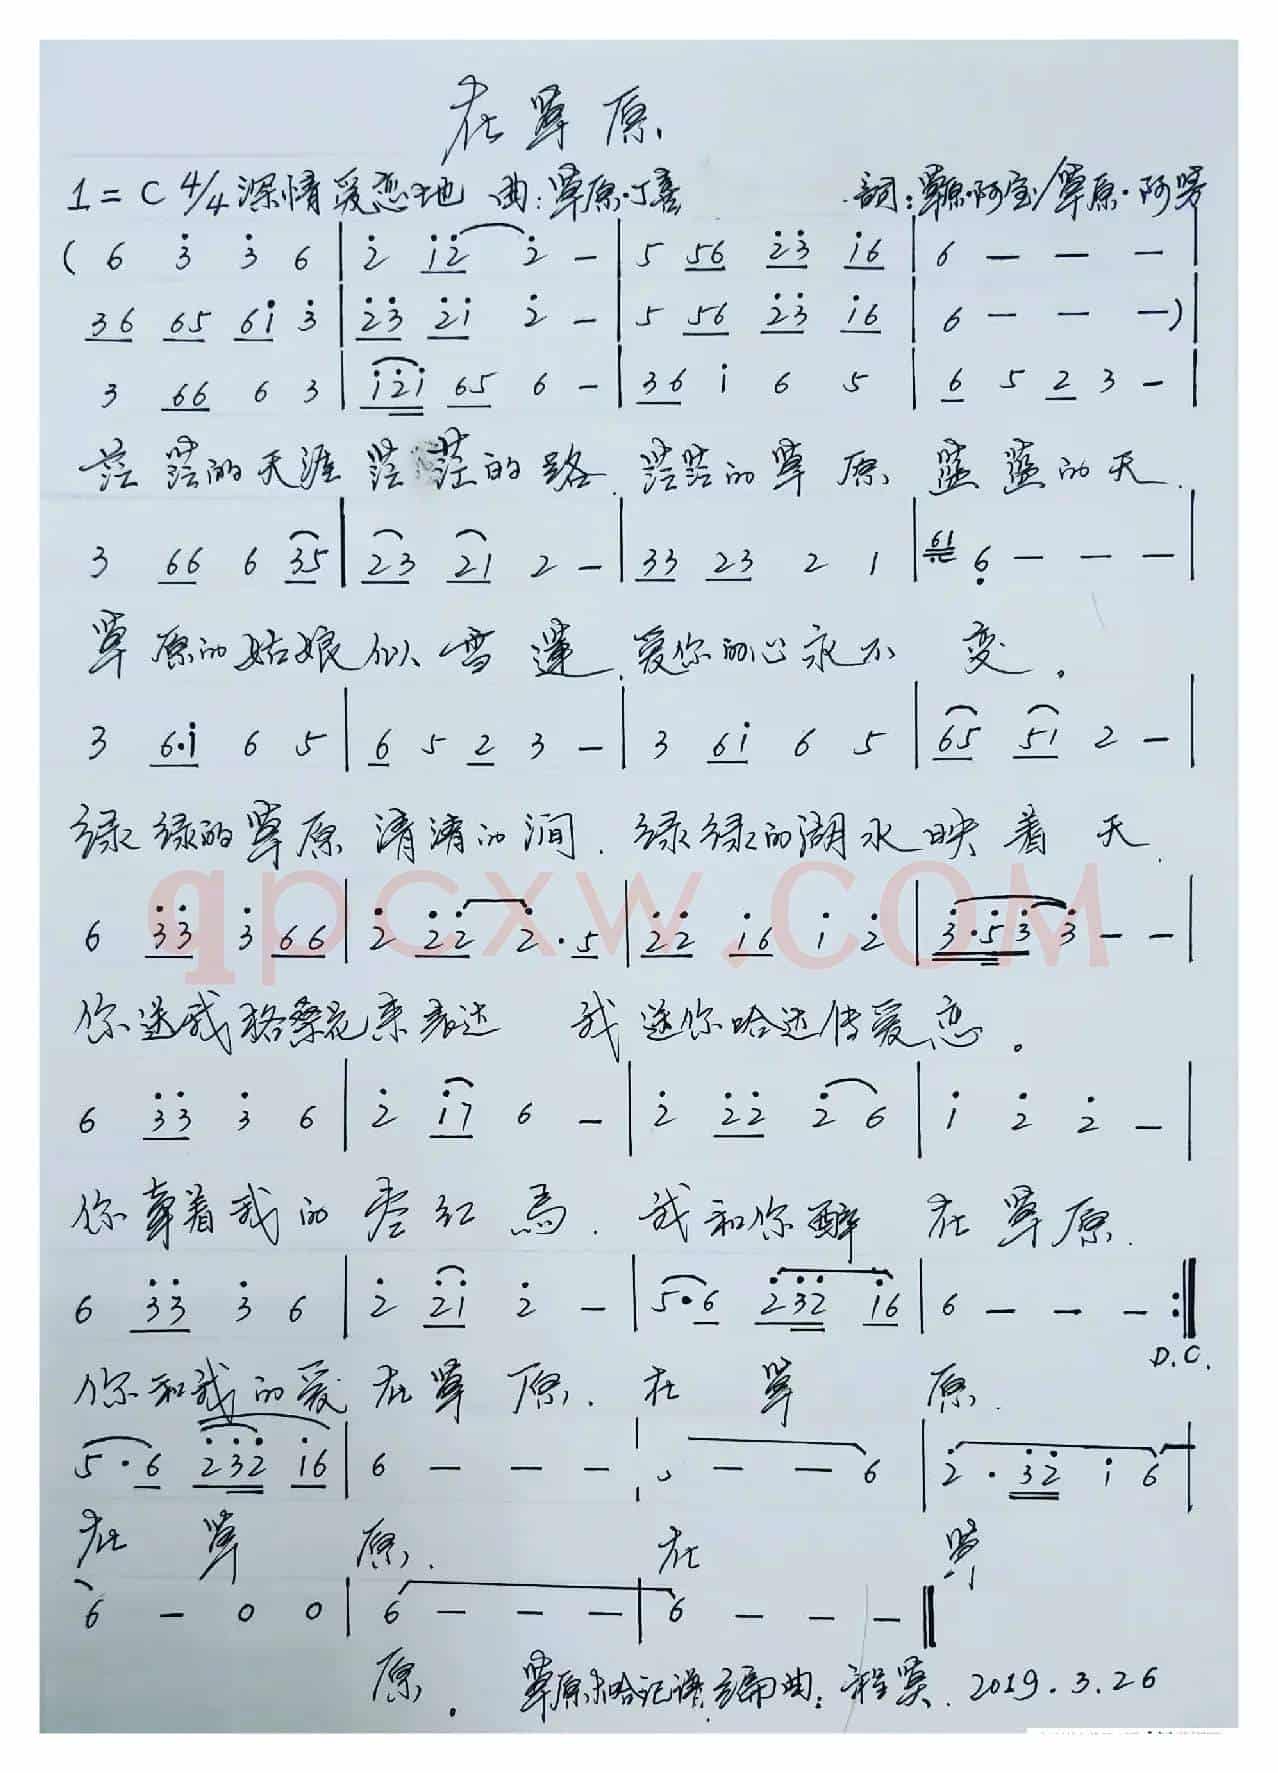 在草原
1=C 4/4 深情爱恋地 曲:草原·丁喜 詞:草原·阿宝/草原·阿努
( 6 3̇ 3̇ 6 | 2̇ 1̇2̇ 2̇ — | 5 56 2̇3̇ 1̇6 | 6 — — — |
36 65 61̇ 3̇ | 2̇3̇ 2̇1̇ 2̇ — | 5 56 2̇3̇ 1̇6 | 6 — — — ) |
3 66 6 3 | 1̇2̇1̇ 65 6 — | 36 1̇ 6 5 | 6 5 2 3 — |
茫茫的天涯茫茫的路.茫茫的草原蓝蓝的天.
3 66 6 35 | 23 21 2 — | 33 23 2 1 | 61 6̣ — — — |
草原的姑娘似雪蓮.爱你的心永不变.
3 6·1̇ 6 5 | 6 5 2 3 — | 3 61̇ 6 5 | 65 51 2 — |
绿绿的草原清清的涧.绿绿的湖水映着天.
qpcxw.COM
6 3̇3̇ 3̇ 66 | 2̇ 2̇2̇ 2̇·5 | 2̇2̇ 1̇6 1̇ 2̇ | 3̇·5̇3̇ 3̇ — — |
你送我格桑花来表达 我送你哈达传爱恋。
6 3̇3̇ 3̇ 6 | 2̇ 1̇7 6 — | 2̇ 2̇2̇ 2̇ 6 | 1̇ 2̇ 2̇ — |
你牵着我的枣红馬.我和你醉在草原.
6 3̇3̇ 3̇ 6 | 2̇ 2̇1̇ 2̇ — | 5·6 2̇3̇2̇ 1̇6 | 6 — — — :‖
D.C.
你和我的爱在草原.在草原.
5·6 2̇3̇2̇ 1̇6 | 6 — — — | — — 6 | 2̇·3̇2̇ 1̇ 6 |
在草原.在草
6 — 0 0 | 6 — — — | 6 — — — ‖
原。 草原 哈记谱.编曲:程 2019.3.26